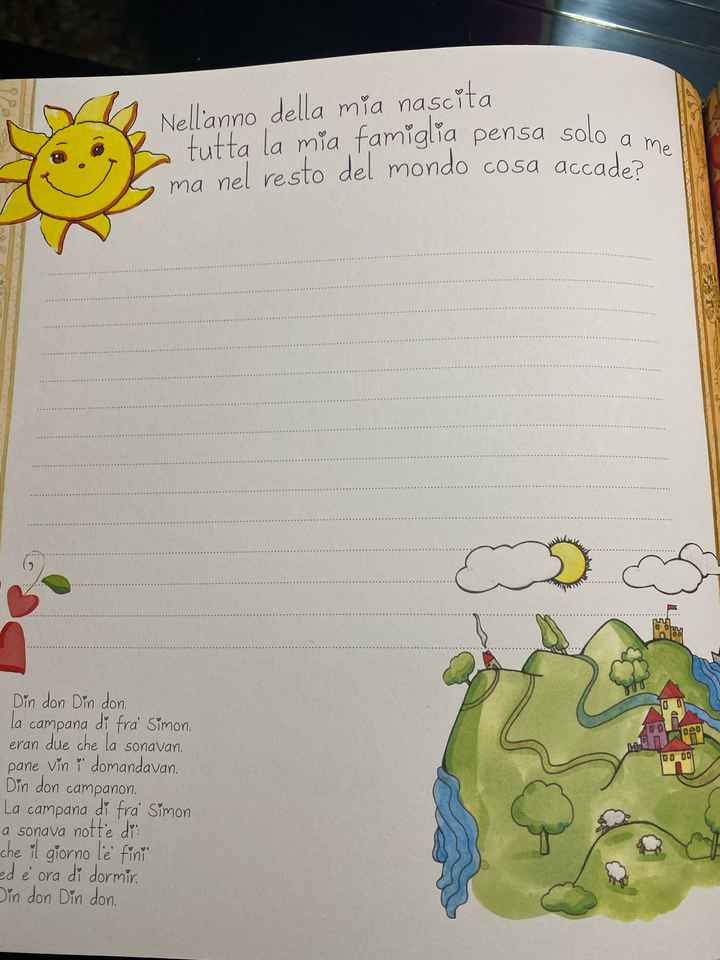 Nell'anno della mia nascita
tutta la mia famiglia pensa solo a me
ma nel resto del mondo cosa accade?
Din don Din don.
la campana di fra' Simon.
eran due che la sonavan.
pane vin i' domandavan.
Din don campanon.
La campana di fra' Simon
a sonava nott'e di':
che il giorno l'e' fini'
ed e' ora di dormir.
Din don Din don.